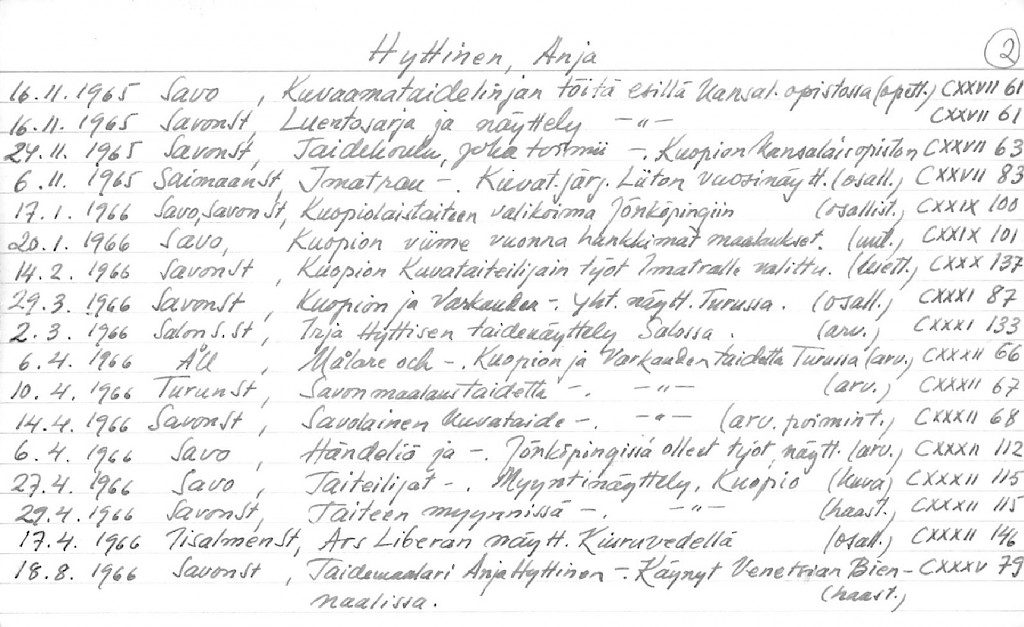 Hyttinen, Anja 2
16.11.1965 Savo, Kuvaamataidelinjan töitä esillä Kansal. opistossa (opett.) CXXVII 61
16.11.1965 SavonSt, Luentosarja ja näyttely -"- CXXVII 61
24.11.1965 SavonSt, Taidekoulu, joka toimii -. Kuopion Kansalaisopiston CXXVII 63
6.11.1965 SaimaanSt, Imatran -. Kuvat.järj. Liiton vuosinäytt. (osall.) CXXVII 83
17.1.1966 Savo, SavonSt, Kuopiolaistaiteen valikoima Jönköpingiin (osallist.) CXXIX 100
20.1.1966 Savo, Kuopion viime vuonna hankkimat maalaukset. CXXIX 101
14.2.1966 SavonSt, Kuopion Kuvataiteilijain työt Imatralle valittu. (luett.) CXXX 137
29.3.1966 SavonSt, Kuopion ja Varkauden -. yht. näytt. Turussa. (osall.) CXXXI 87
2.3.1966 Salons.St, Irja Hyttisen taidenäyttely Salossa. (arv.) CXXXI 133
6.4.1966 ÅU, Målare och -. Kuopion ja Varkauden taidetta Turussa (arv.) CXXXII 66
10.4.1966 TurunSt, Savon maalaustaidetta -. -"- (arv.) CXXXII 67
14.4.1966 SavonSt, Savolainen kuvataide -. -"- (arv. poimint.) CXXXII 68
6.4.1966 Savo, Händeliö ja -. Jönköpingissä olleet työt, näytt. (arv.) CXXXII 112
27.4.1966 Savo, Taiteilijat -. Myyntinäyttely, Kuopio (kuva) CXXXII 115
29.4.1966 SavonSt, Taiteen myynnissä -. -"- (haast.) CXXXII 115
17.4.1966 IisalmenSt, Ars Liberan näytt. Kiuruvedellä (osall.) CXXXII 146
18.8.1966 SavonSt, Taidemaalari Anja Hyttinen -. Käynyt Venetsian Bien- CXXXV 79
naalissa. (haast.)